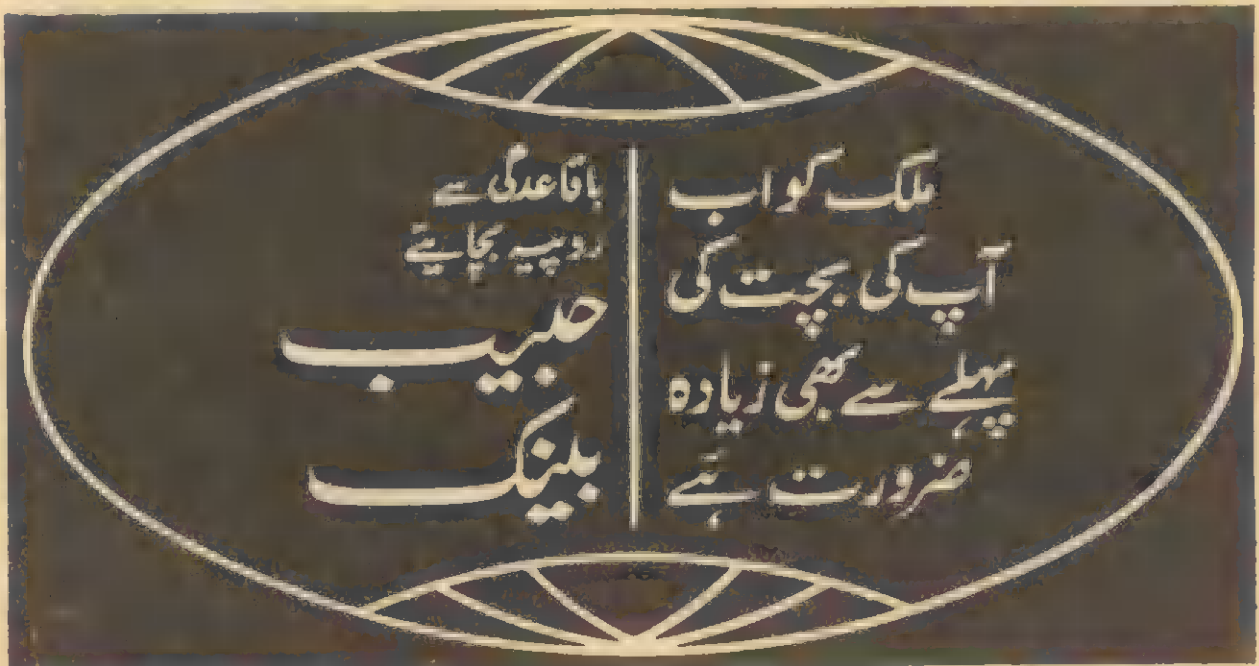 ملک کو اب
آپ کی بچت کی
پہلے سے بھی زیادہ
ضرورت ہے
باقاعدگی سے
روپیہ بچایئے
حبیب
بینک